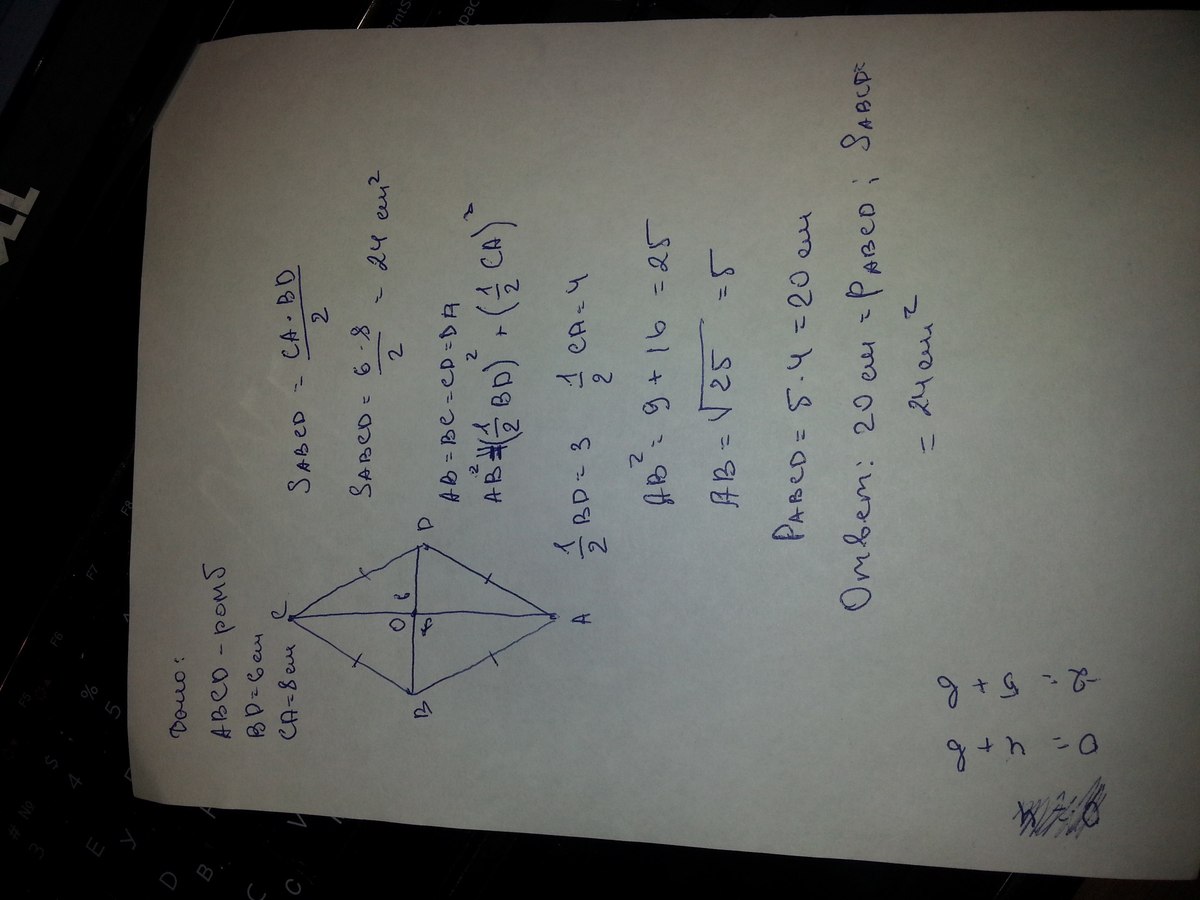 Дано:
ABCD - ромб
BD = 6 см
CA = 8 см
C
B
O
6
8
D
A
S ABCD = CA · BD / 2
S ABCD = 6 · 8 / 2 = 24 см²
AB = BC = CD = DA
AB² = (1/2 BD)² + (1/2 CA)²
1/2 BD = 3 1/2 CA = 4
AB² = 9 + 16 = 25
AB = √25 = 5
P ABCD = 5 · 4 = 20 см
Ответ: 20 см = P ABCD ; S ABCD =
= 24 см²